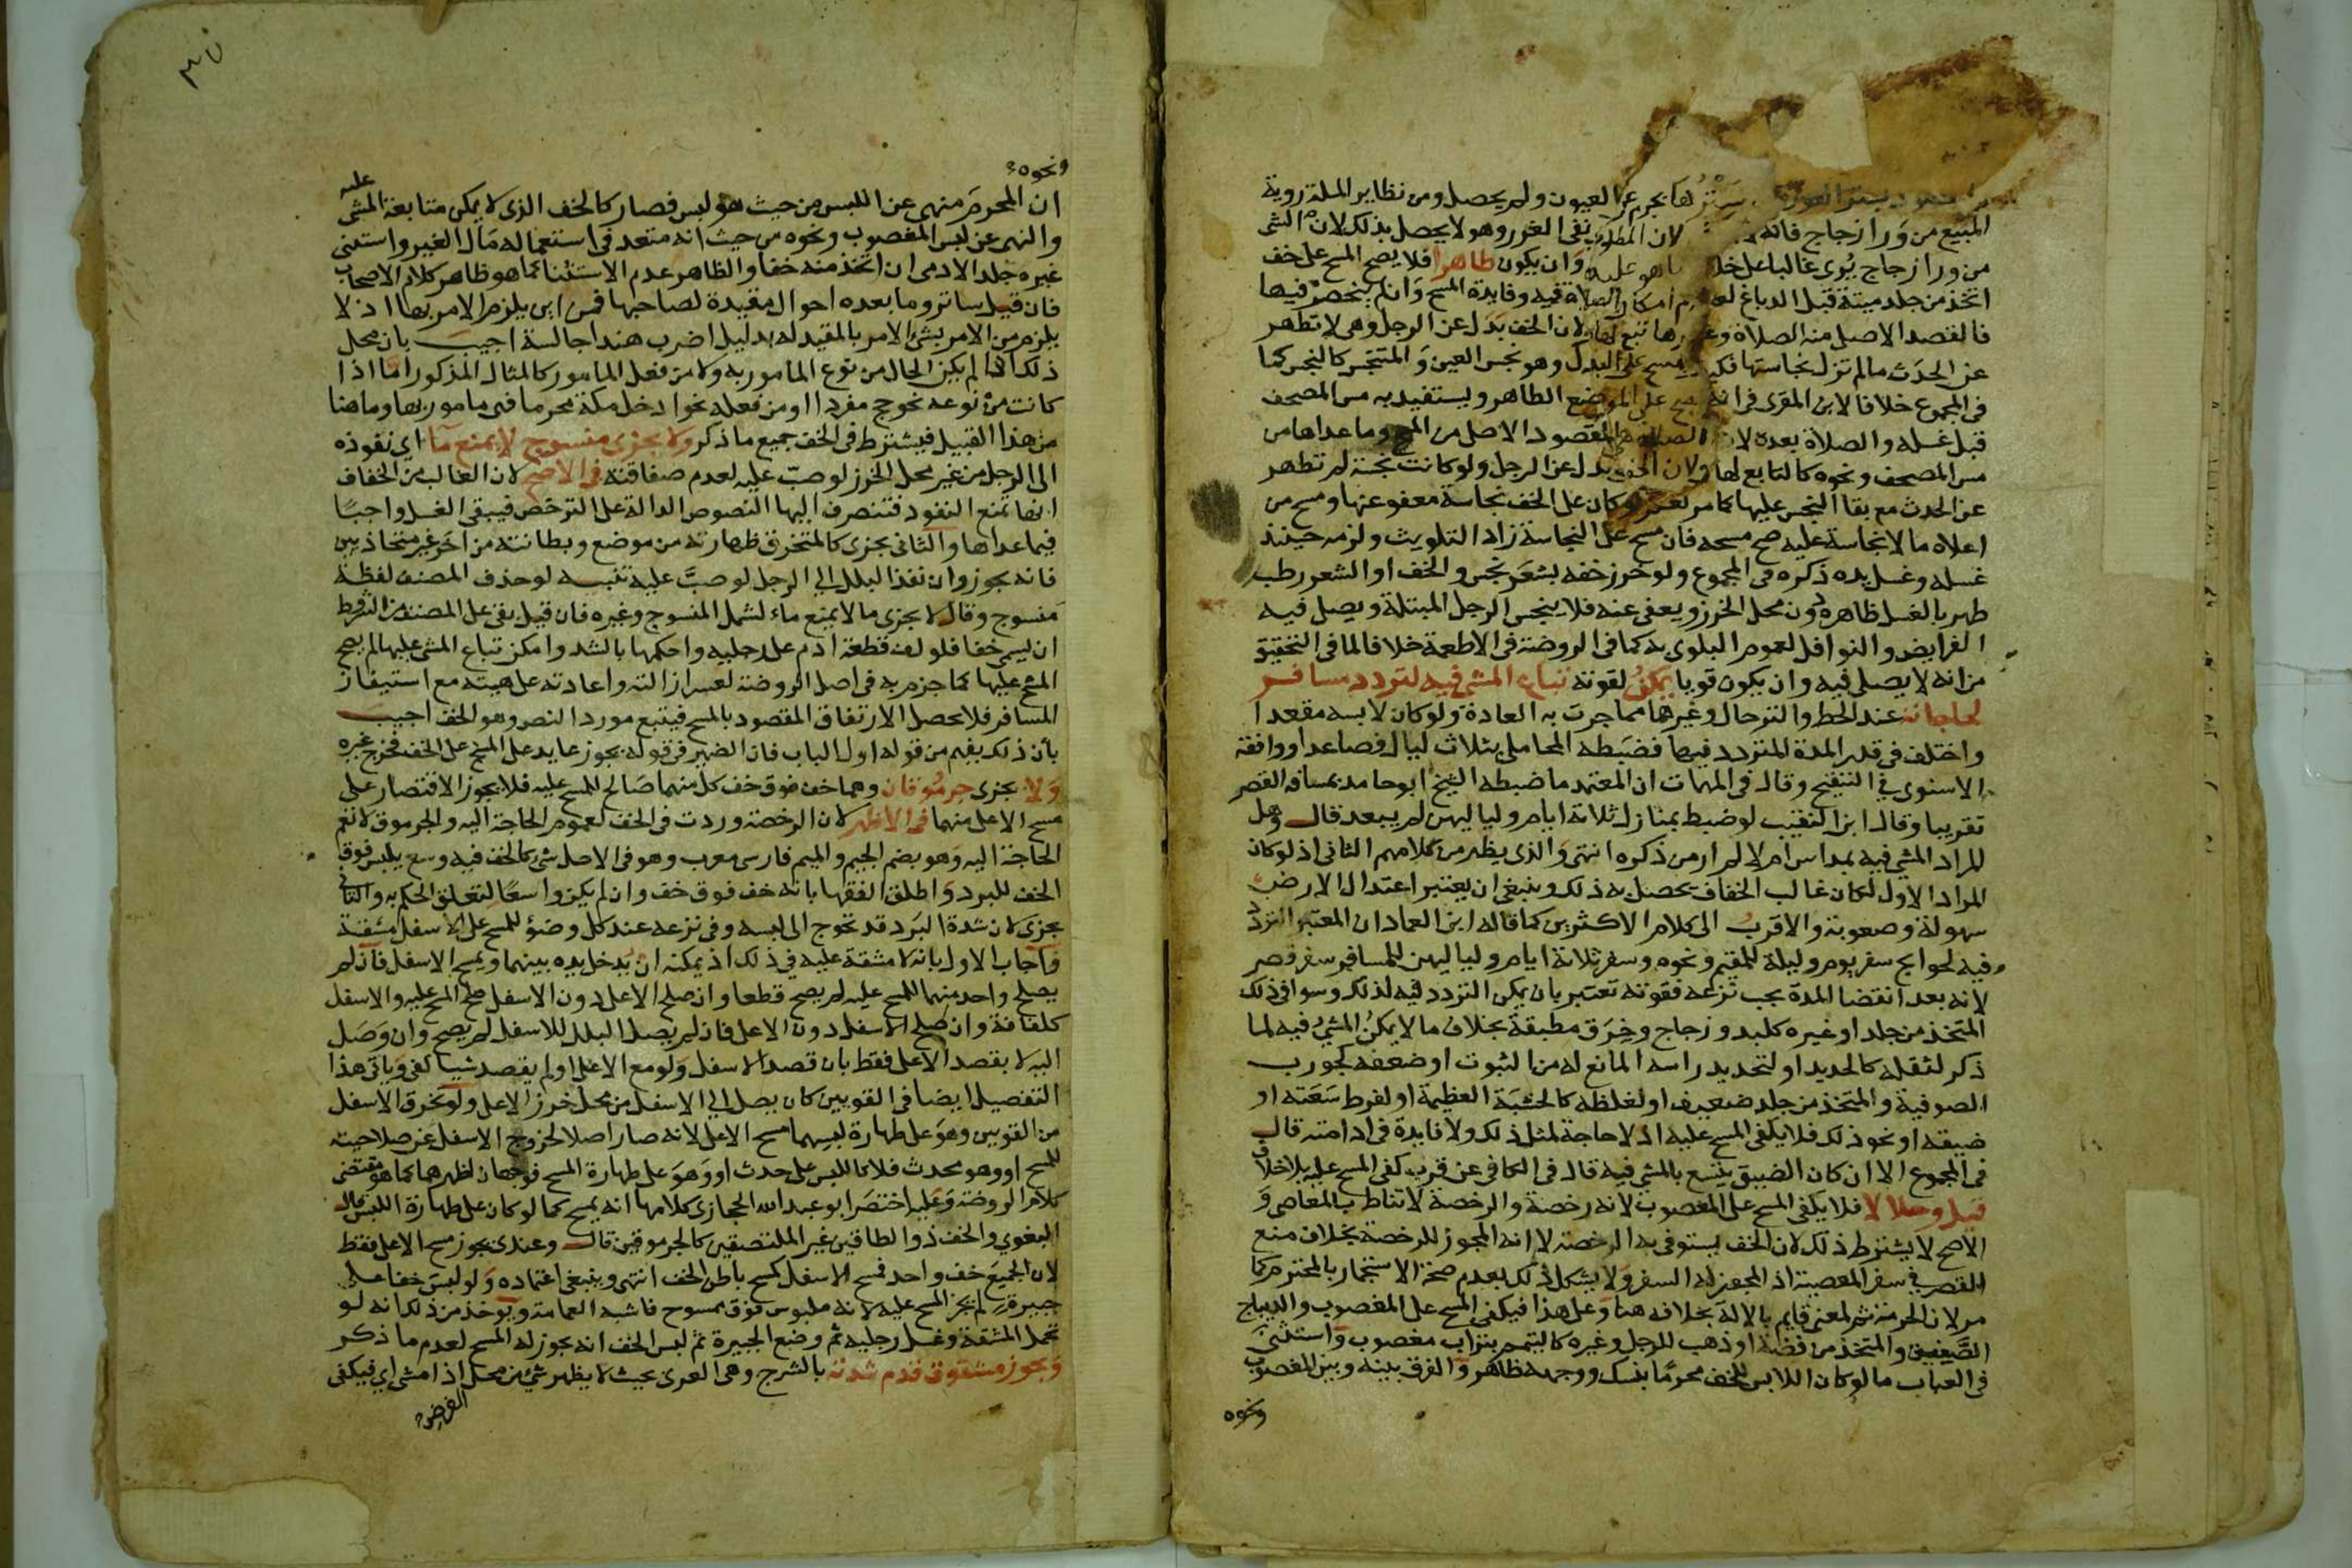 المقصود بستر العورة سترها بجرم عن العيون ولم يحصل ومن نظاير المسلة روية
المبيع من ورا زجاج فانه لان المطلوب نفى الغرر وهو لا يحصل بذلك لان الشى
من ورا زجاج يُرى غالبا على خلاف ما هو عليه وان يكون طاهرا فلا يصح المسح على خف
اتخذ من جلد ميتة قبل الدباغ لعدم امكان الصلاة فيه وفايدة المسح وان لم تنحصر فيها
فالقصد الاصلى منه الصلاة وغيرها تبع لها ولان الخف بدل عن الرجل وهى لا تطهر
عن الحدث ما لم تزل نجاستها فكيف يمسح على البدل وهو نجس العين والمتنجس كالنجس كما
فى المجموع خلافا لابن المقرى فى انه يصح على الموضع الطاهر ويستفيد به مس المصحف
قبل غسله والصلاة بعده لان الصلاة هى المقصود الاصلى من المسح وما عداها من
مس المصحف ونحوه كالتابع لها ولان الخف بدل عن الرجل ولو كانت نجسة لم تطهر
عن الحدث مع بقا النجس عليها كما مر نعم لو كان على الخف نجاسة معفو عنها ومسح من
اعلاه ما لا نجاسة عليه صح مسحه فان مسح على النجاسة زاد التلويث ولزمه حينئذ
غسله وغسل يده ذكره فى المجموع ولو خرز خفه بشعر نجس والخف او الشعر رطب
طهر بالغسل ظاهره دون محل الخرز ويعفى عنه فلا ينجس الرجل المبتلة ويصلى فيه
الفرايض والنوافل لعموم البلوى به كما فى الروضة فى الاطعمة خلافا لما فى التحقيق
من انه لا يصلى فيه وان يكون قويا يمكن لقوته تباع المشى فيه لتردد مسافر
لحاجاته عند الحط والترحال وغيرهما مما جرت به العادة ولو كان لابسه مقعدا
واختلف فى قدر المدة المتردد فيها فضبطه المحاملى بثلاث ليال فصاعدا ووافقه
الاسنوى فى التنقيح وقال فى المهمات ان المعتمد ما ضبطه الشيخ ابو حامد بمسافة القصر
تقريبا وقال ابن النقيب لو ضبط بمنازل ثلاثة ايام ولياليهن لم يبعد قال وهل
المراد المشى فيه بمداس ام لا لم ار من ذكره انتهى والذى يظهر من كلامهم الثانى اذ لو كان
المراد الاول لكان غالب الخفاف يحصل به ذلك وينبغى ان يعتبر اعتدال الارض
سهولة وصعوبة والاقرب الى كلام الاكثرين كما قاله ابن العماد ان المعتبر التردد
فيه لحوايج سفر يوم وليلة للمقيم ونحوه وسفر ثلاثة ايام ولياليهن للمسافر سفر قصر
لانه بعد انقضا المدة يجب نزعه فقوته تعتبر بان يمكن التردد فيه لذلك وسوا فى ذلك
المتخذ من جلد او غيره كلبد وزجاج وخرق مطبقة بخلاف ما لا يمكن المشى فيه لما
ذكر لثقله كالحديد او لتحديد راسه المانع له من الثبوت او ضعفه كجورب
الصوفية والمتخذ من جلد ضعيف او لغلظه كالخشبة العظيمة او لفرط سعته او
ضيقه او نحو ذلك فلا يكفى المسح عليه اذ لا حاجة لمثل ذلك ولا فايدة فى ادامته قال
فى المجموع الا ان كان الضيق يتسع بالمشى فيه قال فى الكافى عن قرب كفى المسح عليه بلا خلاف
قيل وحلالا فلا يكفى المسح على المغصوب لانه رخصة والرخصة لا تناط بالمعاصى و
الاصح لا يشترط ذلك لان الخف يستوفى به الرخصة لا انه المجوز للرخصة بخلاف منع
القصر فى سفر المعصية اذ المجوز له السفر ولا يشكل ذلك بعدم صحة الاستجمار بالمحترم كما
مر لان الحرمة ثم لمعنى قايم بالالة بخلافه هنا وعلى هذا فيكفى المسح على المغصوب والديباج
الصفيق والمتخذ من فضة او ذهب للرجل وغيره كالتيمم بتراب مغصوب واستثنى
فى العباب ما لو كان اللابس للخف محرما بنسك ووجهه ظاهر والفرق بينه وبين المغصوب
ونحوه
٣٥
ونحوه
ان المحرم منهى عن اللبس من حيث هو لبس فصار كالخف الذى لا يمكن متابعة المشى عليه
والنهى عن لبس المغصوب ونحوه من حيث انه متعد فى استعماله مال الغير واستثنى
غيره جلد الادمى ان اتخذ منه خفا والظاهر عدم الاستثنا كما هو ظاهر كلام الاصحاب
فان قيل ساتر وما بعده احوال مقيدة لصاحبها فمن اين يلزم الامر بها اذ لا
يلزم من الامر بشئ الامر بالمقيد له بدليل اضرب هندا جالسة اجيب بان محل
ذلك اذا لم يكن الحال من نوع المامور به ولا من فعل المامور كالمثال المذكور اما اذا
كانت من نوعه نحو حج مفردا او من فعله نحو ادخل مكة محرما فهى مامور بها وما هنا
من هذا القبيل فيشترط فى الخف جميع ما ذكر ولا يجزى منسوج لا يمنع ما اى نفوذه
الى الرجل من غير محل الخرز لو صب عليه لعدم صفاقته فى الاصح لان الغالب من الخفاف
انها تمنع النفوذ فتنصرف اليها النصوص الدالة على الترخص فيبقى الغسل واجبا
فيما عداها والثانى يجزى كالمتخرق ظهارته من موضع وبطانته من اخر غير متحاذيين
فانه يجوز وان نفذ البلل الى الرجل لو صب عليه تنبيه لو حذف المصنف لفظة
منسوج وقال لا يجزى ما لا يمنع ماء لشمل المنسوج وغيره فان قيل بقى على المصنف من الشروط
ان يسمى خفا فلو لف قطعة ادم على رجليه واحكمها بالشد وامكن تباع المشى عليها لم يصح
المسح عليها كما جزم به فى اصل الروضة لعسر ازالته واعادته على هيئته مع استيفاز
المسافر فلا يحصل الارتفاق المقصود بالمسح فيتبع مورد النص وهو الخف اجيب
بأن ذلك يفهم من قوله اول الباب فان الضمير فى قوله يجوز عايد على المسح على الخف فخرج غيره
ولا يجزى جرموقان وهما خف فوق خف كل منهما صالح للمسح عليه فلا يجوز الاقتصار على
مسح الاعلى منهما فى الاظهر لان الرخصة وردت فى الخف لعموم الحاجة اليه والجرموق لا تعم
الحاجة اليه وهو بضم الجيم والميم فارسى معرب وهو فى الاصل شى كالخف فيه وسع يلبس فوق
الخف للبرد واطلق الفقها بانه خف فوق خف وان لم يكن واسعا لتعلق الحكم به والثانى
يجزى لان شدة البرد قد تحوج الى لبسه وفى نزعه عند كل وضؤ للمسح على الاسفل مشقة
واجاب الاول بانه لا مشقة عليه فى ذلك اذ يمكنه ان يدخل يده بينهما ويمسح الاسفل فان لم
يصلح واحد منهما للمسح عليه لم يصح قطعا وان صلح الاعلى دون الاسفل صح المسح عليه والاسفل
كلفافة وان صلح الاسفل دون الاعلى فان لم يصل البلل للاسفل لم يصح وان وصل
اليه لا بقصد الاعلى فقط بان قصد الاسفل ولو مع الاعلى او لم يقصد شيا كفى وياتى هذا
التفصيل ايضا فى القويين كان يصل الى الاسفل من محل خرز الاعلى ولو تخرق الاسفل
من القويين وهو على طهارة لبسهما مسح الاعلى لانه صار اصلا لخروج الاسفل عن صلاحيته
للمسح او وهو محدث فلا كاللبس على حدث او وهو على طهارة المسح فوجهان اظهرهما كما هو مقتضى
كلام الروضة وعليه اختصر ابو عبد الله الحجازى كلامها انه يمسح كما لو كان على طهارة اللبس قال
البغوي والخف ذو الطاقين غير الملتصقين كالجرموقين قال وعندى يجوز مسح الاعلى فقط
لان الجميع خف واحد فمسح الاسفل كمسح باطن الخف انتهى وينبغى اعتماده ولو لبس خفا على
جبيرة لم يجز المسح عليه لانه ملبوس فوق ممسوح فاشبه العمامة ويوخذ من ذلك انه لو
تحمل المشقة وغسل رجليه ثم وضع الجبيرة ثم لبس الخف انه يجوز له المسح لعدم ما ذكر
ويجوز مشقوق قدم شد بالشرج وهى العرى بحيث لا يظهر شئ من محل اذا مشى اي فيكفى
الفرض